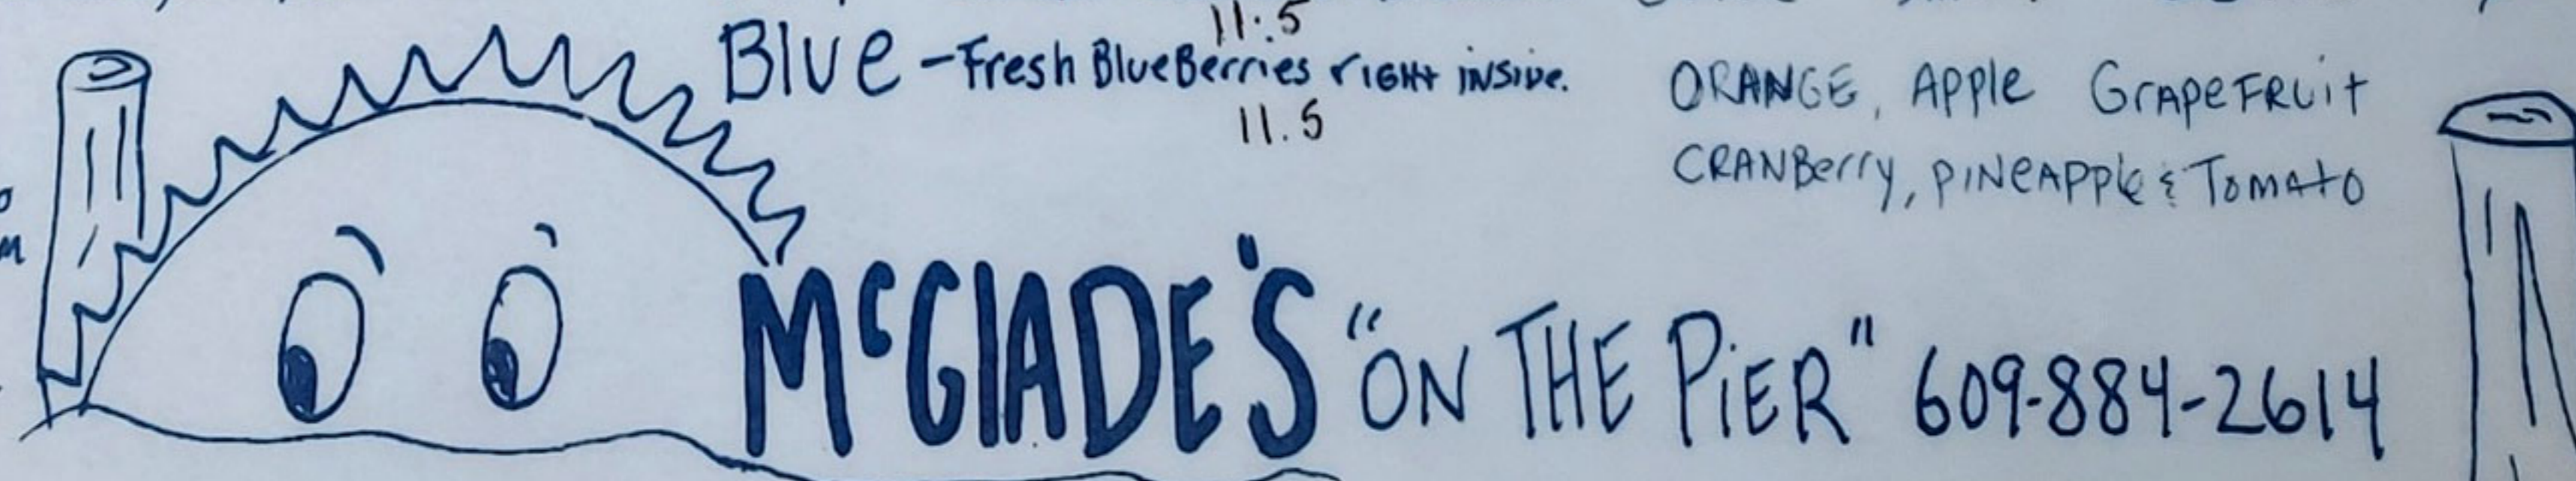 11.5
Blue - Fresh BlueBerries rIGHt iNSiDe.
11.5
ORANGE, Apple GrapeFRuit
CRANBerry, PiNeAppLe & TomAto
McGlADE'S "ON THE PiER" 609-884-2614